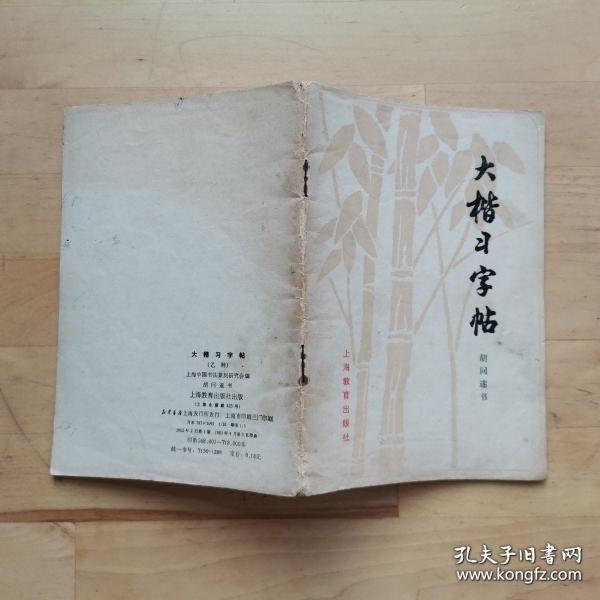 大楷习字帖
胡问遂书
上海教育出版社
大楷习字帖
(乙种)
上海中国书法篆刻研究会编
胡问遂书
上海教育出版社出版
(上海永福路123号)
新华书店上海发行所发行 上海市印刷三厂印刷
开本 787×1092 1/32 印张 1.5
统一书号：7150·1289 定价：0.10元
孔夫子旧书网
www.kongfz.com